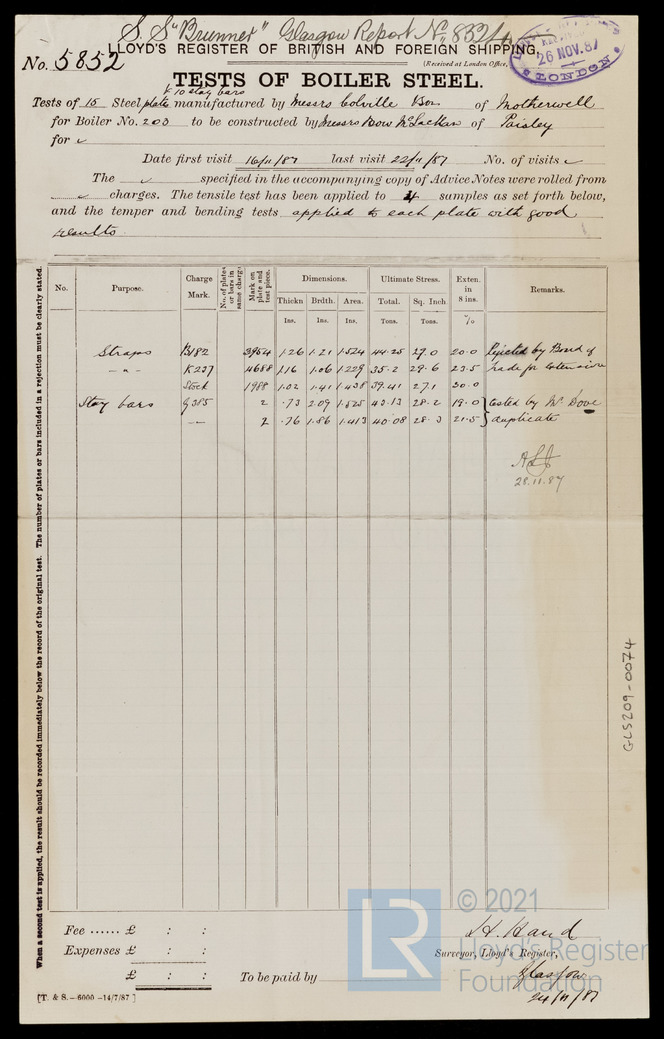 S. S "Brunner" Glasgow Report No. 8324
LLOYD'S REGISTER OF BRITISH AND FOREIGN SHIPPING,
No. 5852
(Received at London Office,
26 NOV. 87
LONDON
TESTS OF BOILER STEEL.
& 10 stay bars
Tests of 15 Steel plate manufactured by Messrs Colville & Son of Motherwell
for Boiler No. 203 to be constructed by Messrs Bow McLachlan of Paisley
for
Date first visit 16/11/87 last visit 22/11/87 No. of visits
The specified in the accompanying copy of Advice Notes were rolled from
charges. The tensile test has been applied to 4 samples as set forth below,
and the temper and bending tests applied to each plate with good
results.
No. Purpose. Charge Mark. No. of plates or bars in same charge. Mark on plate and test piece. Dimensions. Ultimate Stress. Exten. in 8 ins. Remarks.
Thickn Brdth. Area. Total. Sq. Inch.
Ins. Ins. Ins. Tons. Tons. %
Straps B182 3954 1.26 1.21 1.524 44.25 29.0 20.0 Rejected by Board of
" K237 4688 1.16 1.06 1.229 35.2 28.6 23.5 Trade for extension
Stock 1988 1.02 1.41 1.438 39.41 27.1 30.0
Stay bars G385 2 .73 2.09 1.525 43.13 28.2 19.0 tested by Mr Dove
2 .76 1.86 1.413 40.08 28.3 21.5 duplicate
28.11.87
When a second test is applied, the result should be recorded immediately below the record of the original test. The number of plates or bars included in a rejection must be clearly stated.
GLS209-0074
Fee ...... £ : :
Expenses £ : :
£ : :
To be paid by
J.H. Hand
Surveyor, Lloyd's Register,
Glasgow
24/11/87
[T. & S.—6000 —14/7/87 ]
LR © 2021
Lloyd's Register
Foundation